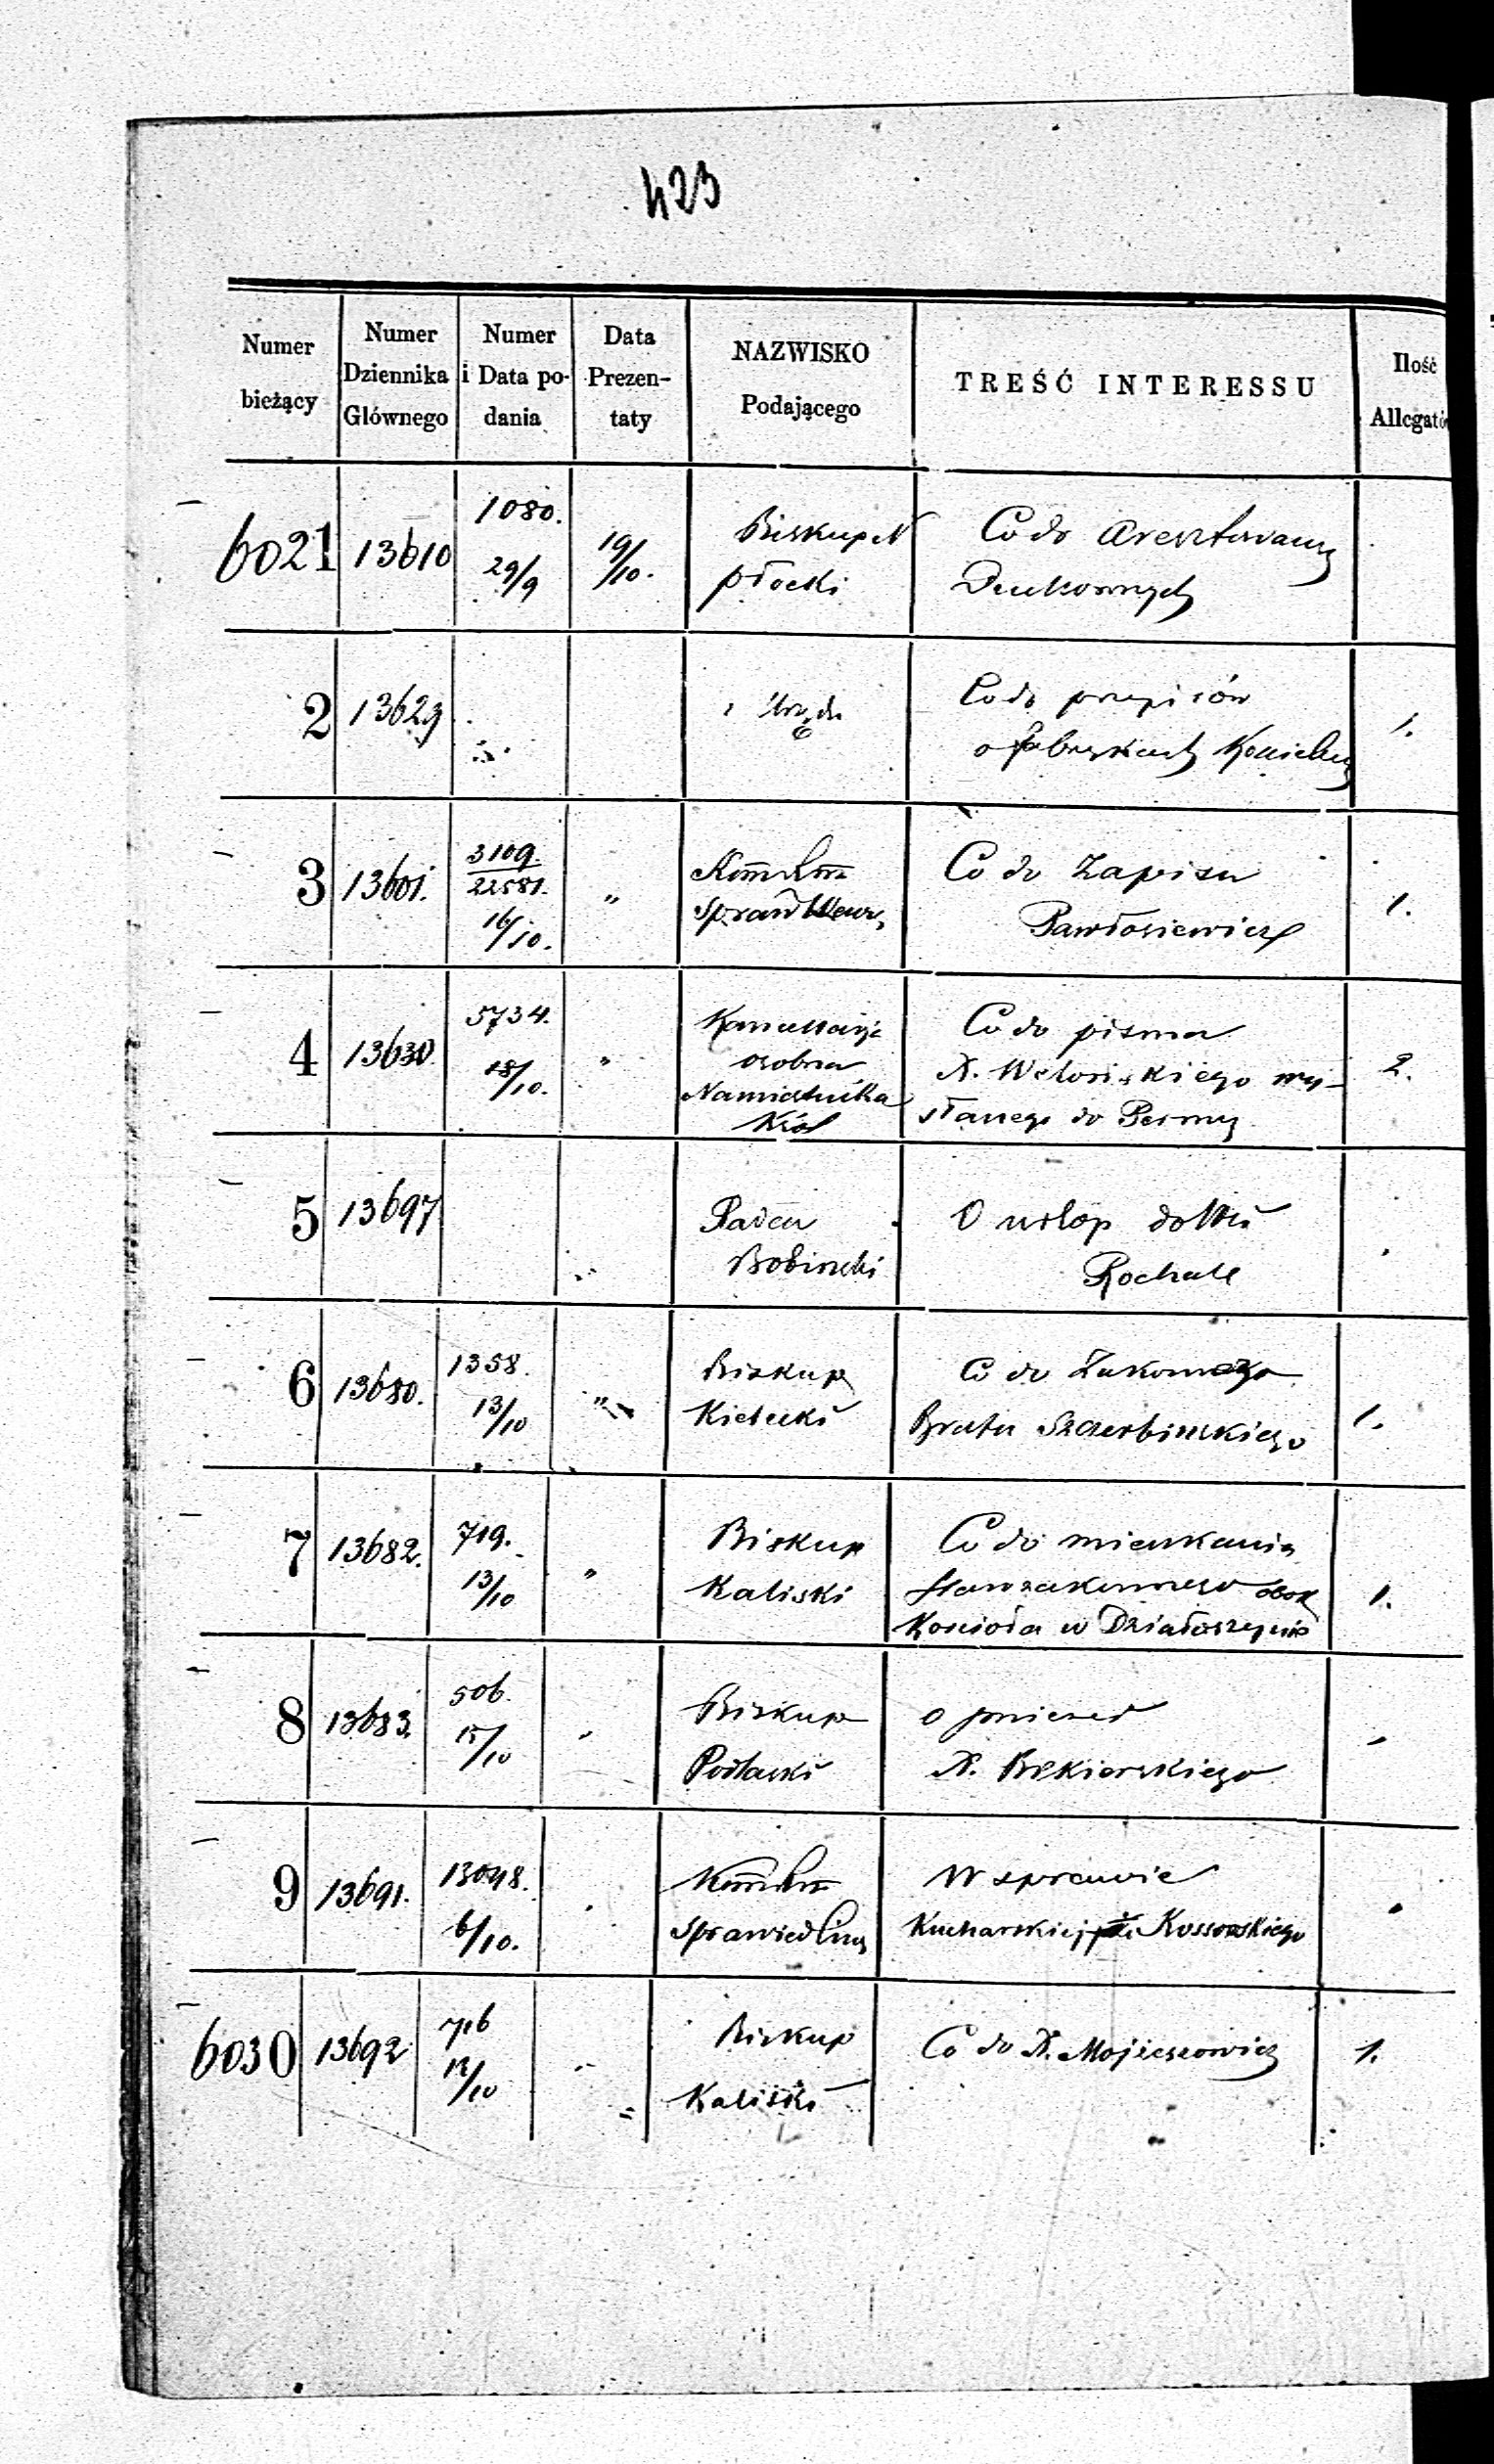 423
Numer bieżący
Numer Dziennika Głównego
Numer i Data podania
Data Prezentaty
NAZWISKO Podającego
TREŚĆ INTERESSU
Ilość Allegató
6021 13610 1080. 29/9 19/10. Biskup Co do aresztowany
płocki Duchownych
2 13623 z Urzędu Co do przepisów 1.
o fabrykach
3 13601. 3109. 22581. 16/10. " Kommissm Co do Zapisu 1.
Spraw Pawłosiewicz
4 13630. 5734. 18/10. " Kancellarja Co do pisma 2.
osobna X. Wełosińskiego wy-
Namiestnika słanego do Permy
Król
5 13697 Radca O urlop do Wsi
Bobinski Rochale
6 13680. 1358. 13/10 " Biskup Co do Zakonnego 1.
Kielecki Brata Szczerbinskiego
7 13682. 719. 13/10 " Biskup Co do mieszkania 1.
Kaliski Starozakonnego obok
Kościoła w Działoszynie
8 13683. 506. 15/10 " Biskup O
Podlaski X. Bekierskiego
9 13691. 13048. 6/10. Kommissm W sprawie
Sprawiedliw Kucharskiej Kossowskiego
6030 13692 716 12/10 " Biskup Co do X. Mojzeszowicz 1.
Kaliski